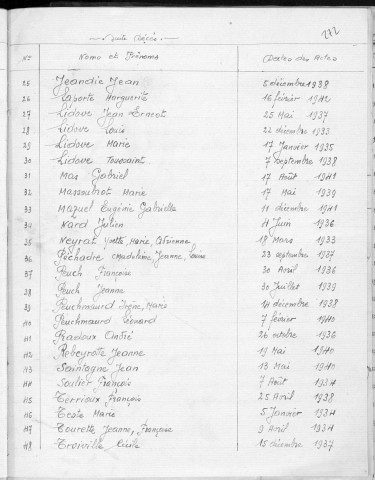 272
Suite Décès
N° Noms et Prénoms Dates des Actes
25 Jeandie Jean 5 décembre 1938
26 Laporte Marguerite 16 février 1942
27 Lidove Jean Ernest 25 Mai 1937
28 Lidove Louis 22 décembre 1933
29 Lidove Marie 17 Janvier 1935
30 Lidove Toussaint 7 septembre 1938
31 Mas Gabriel 17 Août 1941
32 Massoubrot Marie 17 Mai 1939
33 Mazuel Eugénie Gabrielle 11 décembre 1941
34 Nard Julien 11 Juin 1936
35 Neyrat Yvette, Marie, Etiennne 18 Mars 1933
36 Péchadre Madeleine, Jeanne, Louise 23 septembre 1937
37 Peuch Françoise 30 Avril 1936
38 Peuch Jeanne 30 Juillet 1939
39 Peuchmaurd Irène, Marie 14 décembre 1938
40 Peuchmaurd Léonard 7 février 1940
41 Radoux André 26 octobre 1936
42 Rebeyrotte Jeanne 19 Mai 1940
43 Saintagne Jean 13 Mai 1940
44 Soulier François 7 Août 1934
45 Terrioux François 25 Avril 1938
46 Teste Marie 5 Janvier 1934
47 Tourette Jeanne, Françoise 9 Avril 1934
48 Treiville Cécile 15 décembre 1937